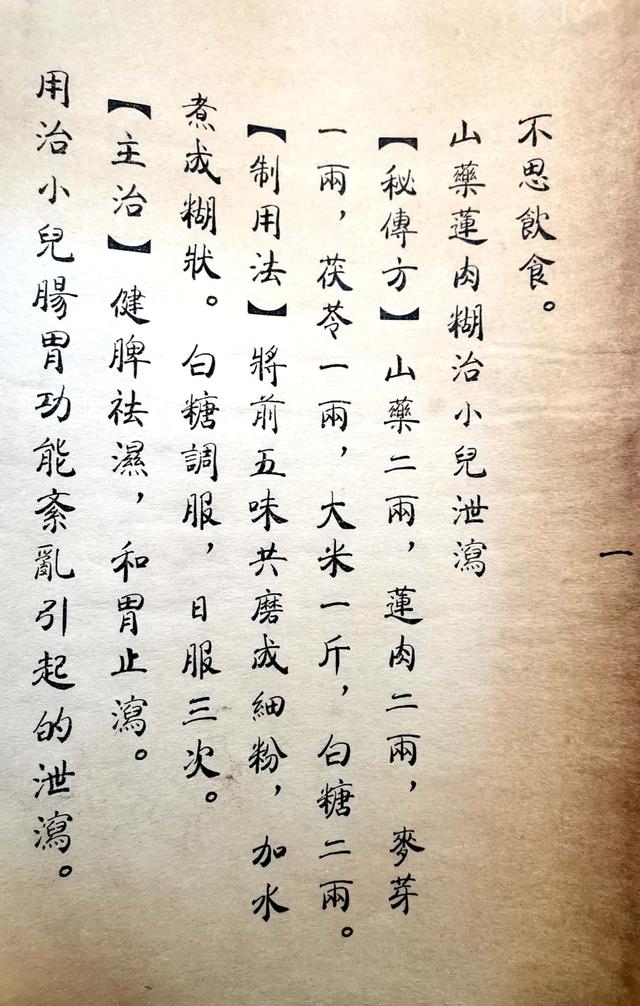 不思飲食。
山藥蓮肉糊治小兒泄瀉
【秘傳方】山藥二兩，蓮肉二兩，麥芽
一兩，茯苓一兩，大米一斤，白糖二兩。
【制用法】將前五味共磨成細粉，加水
煮成糊狀。白糖調服，日服三次。
【主治】健脾祛濕，和胃止瀉。
用治小兒腸胃功能紊亂引起的泄瀉。
一